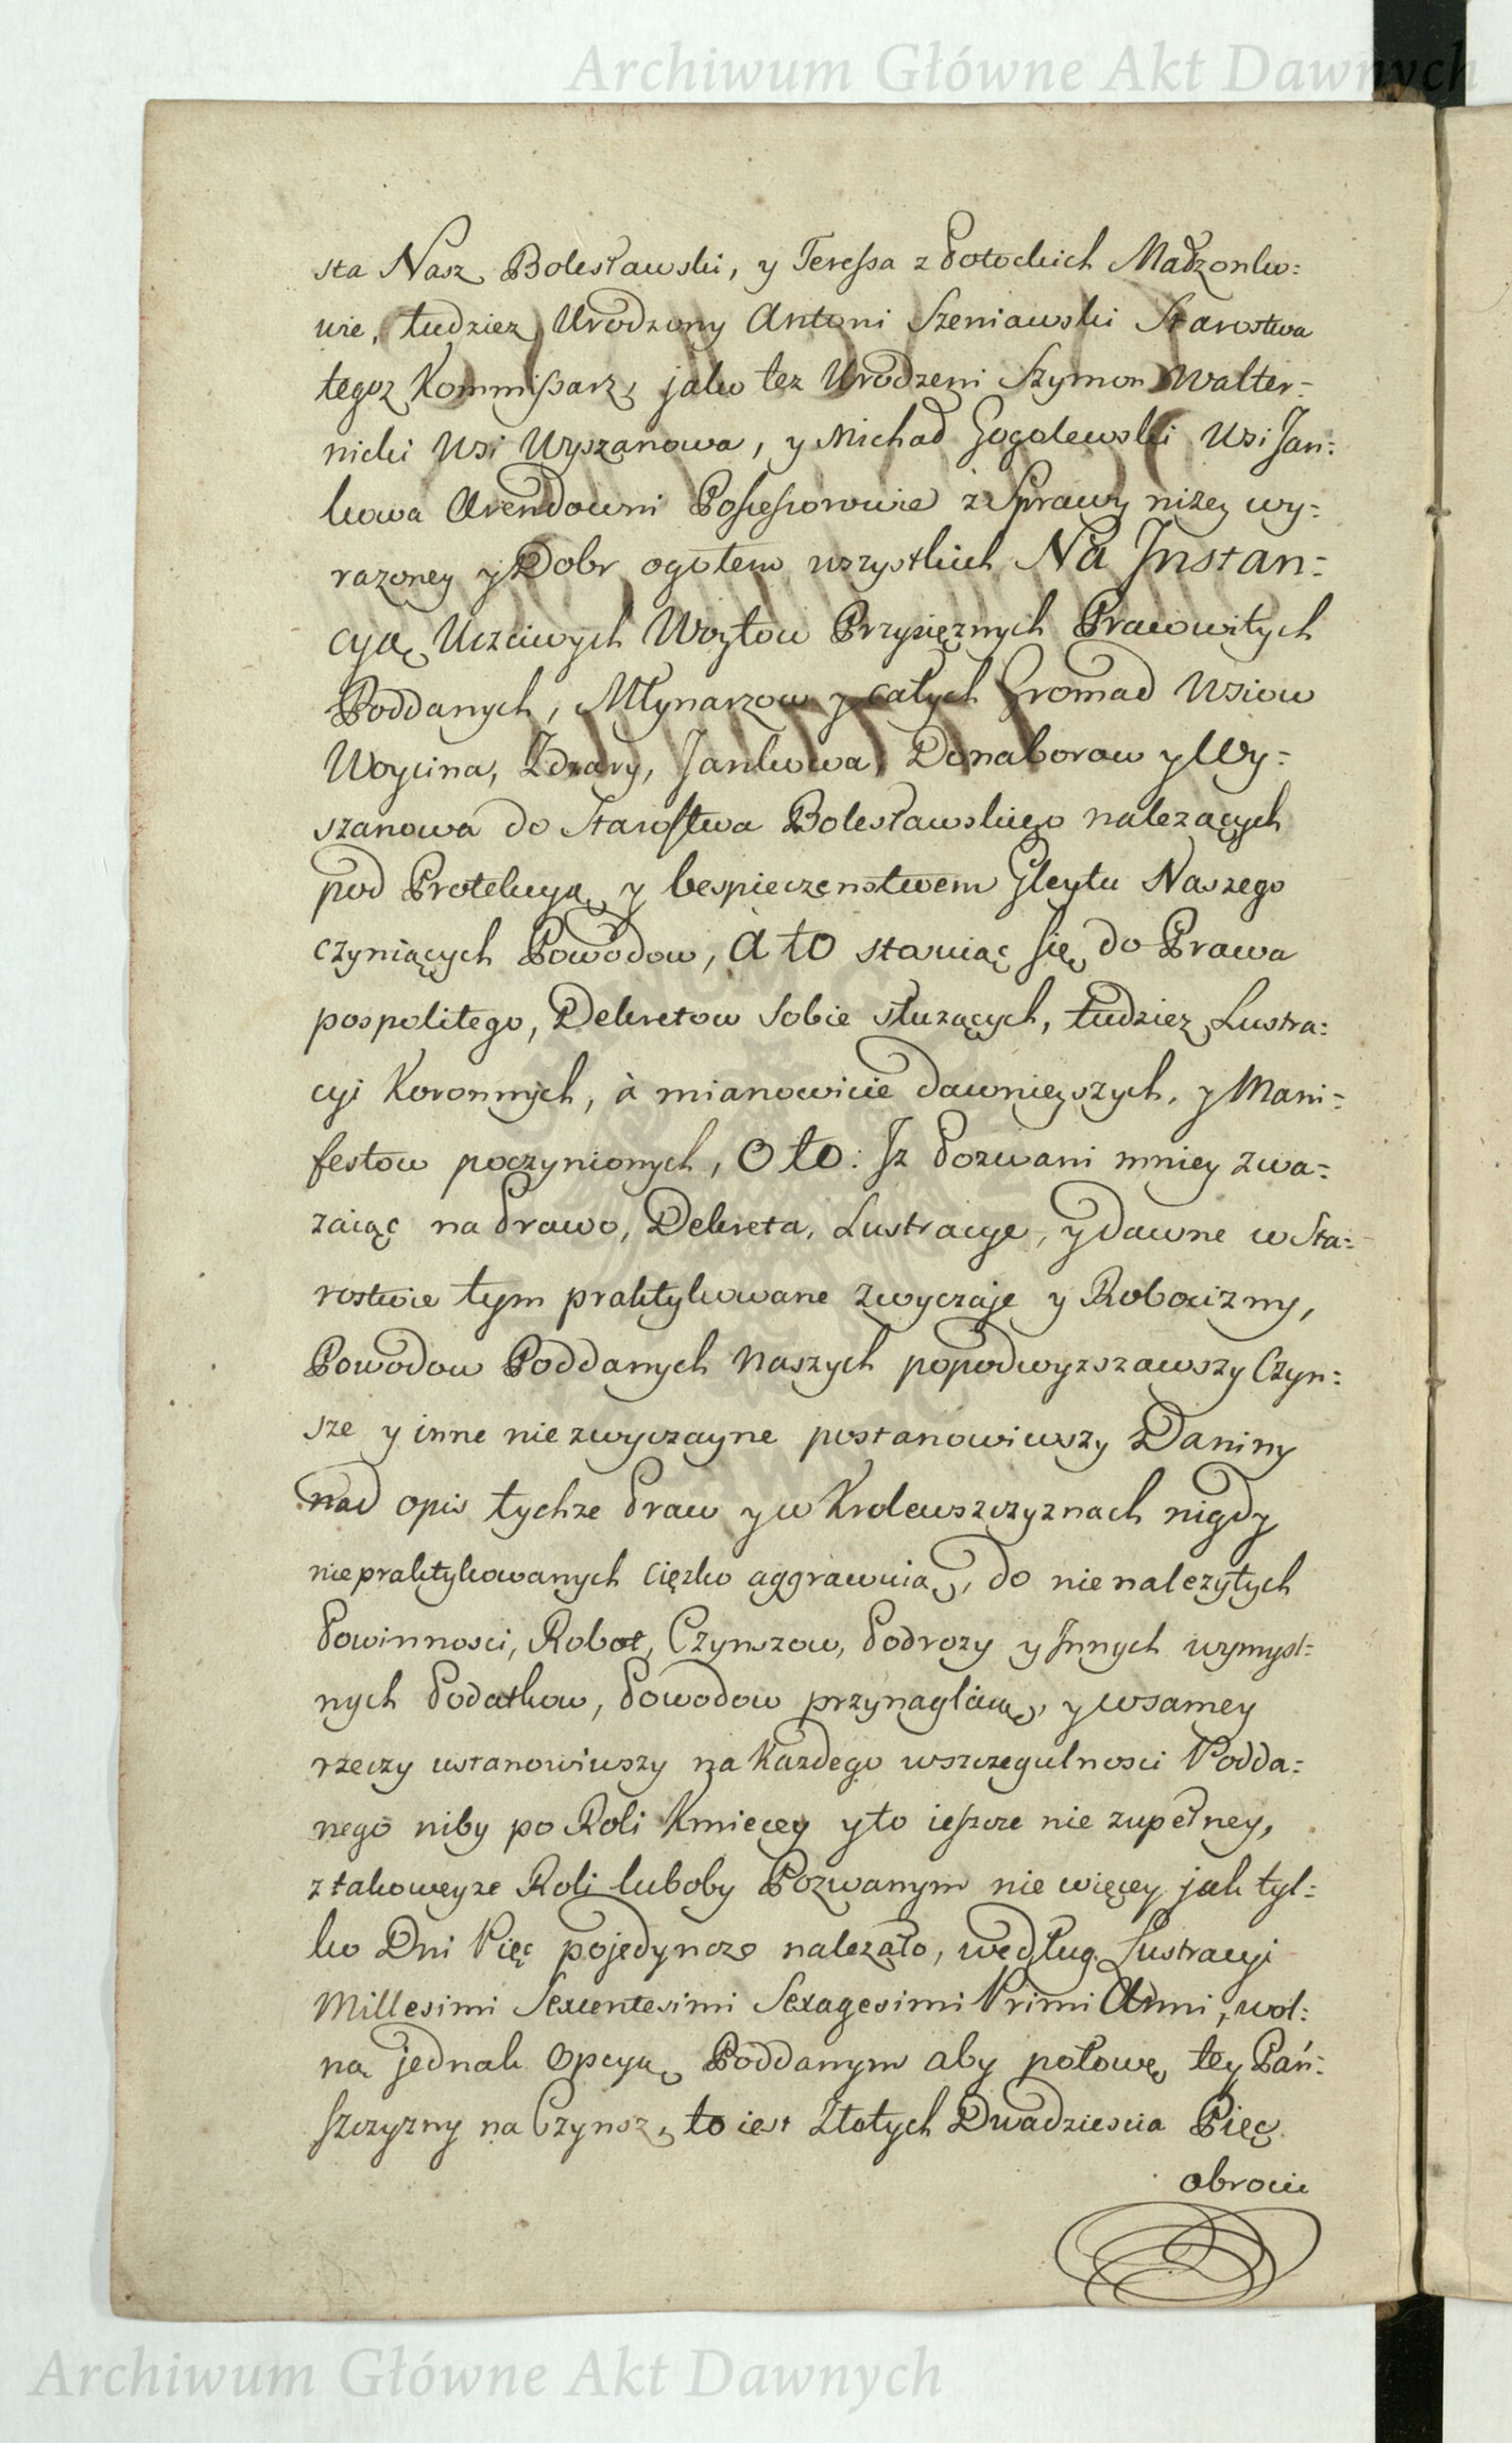 Archiwum Główne Akt Dawnych
sta Nasz Bolesławski, y Teressa z Potockich Małzonko=
wie, tudziez Urodzony Antoni Szeniawski Starostwa
tegoz Kommissarz, jako tez Urodzeni Szymon Walter=
nicki Wsi Wyszanowa, y Michał Gogolewski Wsi Jan=
kowa Arendowni Possessorowie z Sprawy nizey wy=
razoney y Dobr ogołem wszystkich Na Jnstan=
cyą Uczciwych Woytow Przysięznych Pracowitych
Poddanych, Młynarzow y całych Gromad Wsiow
Woycina, Zdzary, Jankowa, Donaborow y Wy=
szanowa do Starostwa Bolesławskiego nalezących
pod Protekcyą y bespieczenstwem Gleytu Naszego
czyniących Powodow, à to stawiąc się do Prawa
pospolitego, Dekretow sobie słuzących, tudziez Lustra=
cyi Koronnych, à mianowicie dawnieyszych, y Mani=
festow poczynionych, O to: Jz Pozwani mniey zwa=
zaiąc na Prawo, Dekreta, Lustracye, y dawne w Sta=
rostwie tym praktykowane zwyczaje y Robocizny,
Powodow Poddanych Naszych popodwyzszawszy Czyn=
sze y inne niezwyczayne postanowiwszy Daniny
nad opis tychze Praw y w Krolewszczyznach nigdy
niepraktykowanych cięzko aggrawuią, do nienalezytych
Powinnosci, Robot, Czynszow, Podrozy y Jnnych wymysl=
nych Podatkow, Powodow przynaglaią, y wsamey
rzeczy ustanowiwszy na Kazdego wszczegulnosci Podda=
nego niby po Roli Kmiecey y to ieszcze nie zupełney,
z takoweyze Roli luboby Pozwanym nie więcey jak tyl=
ko Dni Pięc pojedynczo nalezało, według Lustracyi
Millesimi Sexcentesimi Sexagesimi Primi Anni, wol=
ną jednak Opcyą Poddanym aby połowę tey Pań=
szczyzny na Czynsz, to iest Złotych Dwadziescia Pięc
obrocic
Archiwum Główne Akt Dawnych